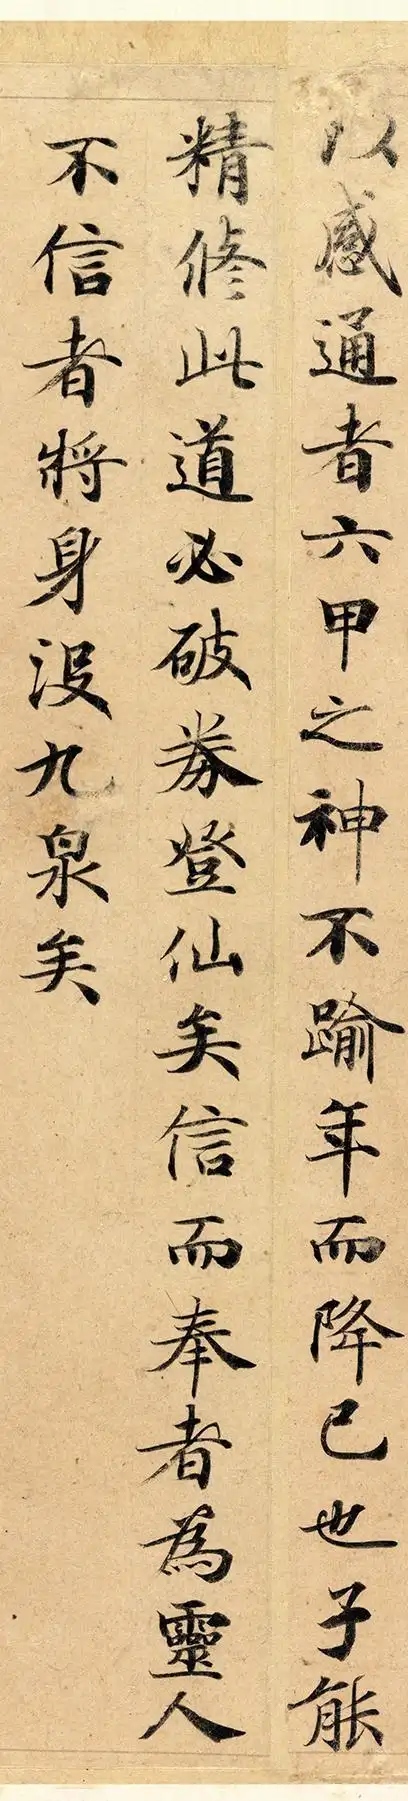 以感通者六甲之神不踰年而降己也子能
精脩此道必破券登仙矣信而奉者為靈人
不信者將身没九泉矣